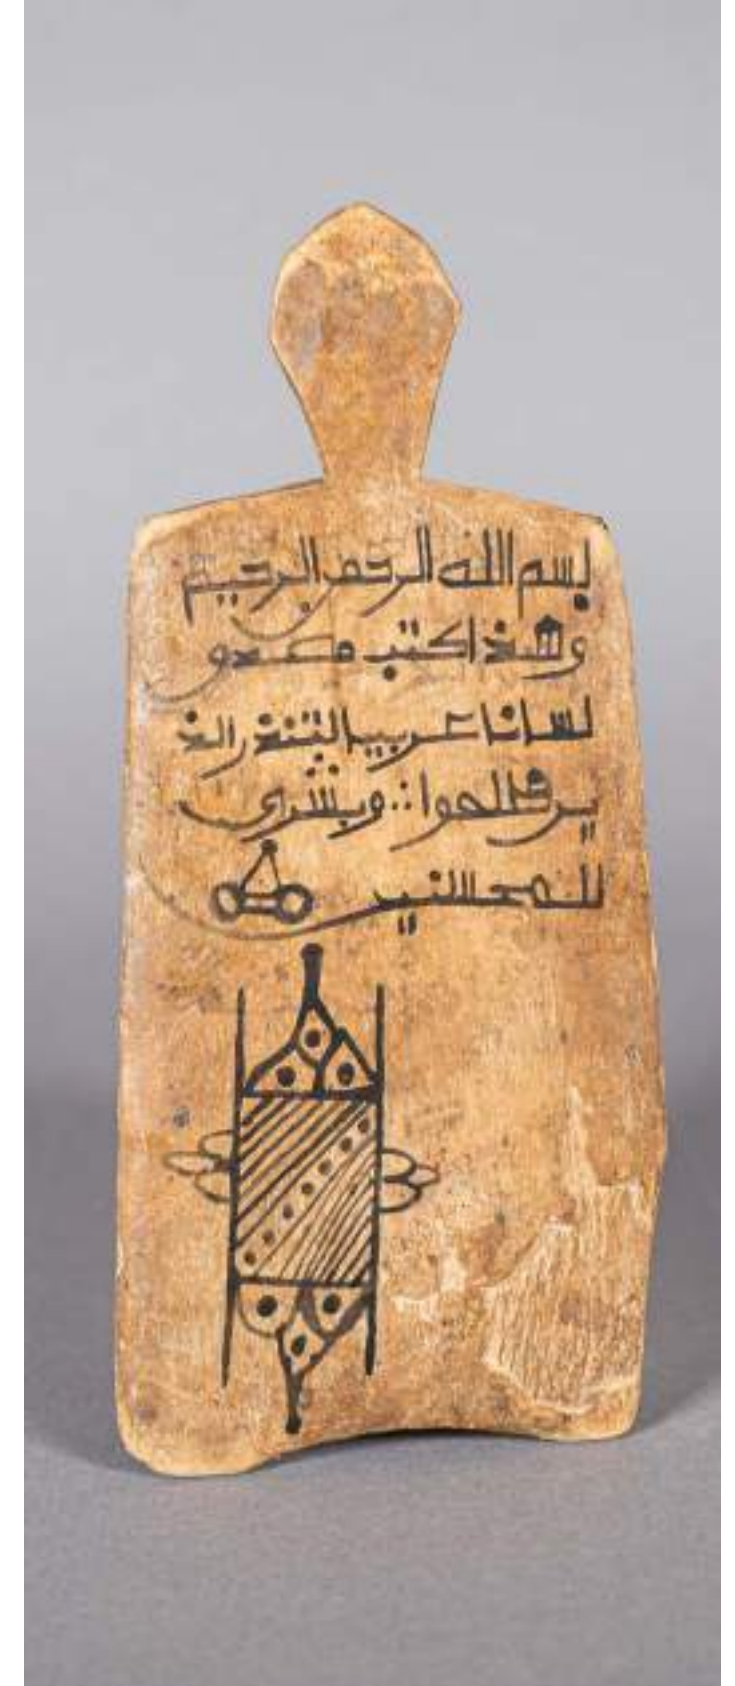 بسم الله الرحمن الرحيم
وهذا كتب مصدق
لسانا عربيا لتنذر الذ
ين ظلموا ∴ وبشرى
للمحسنين